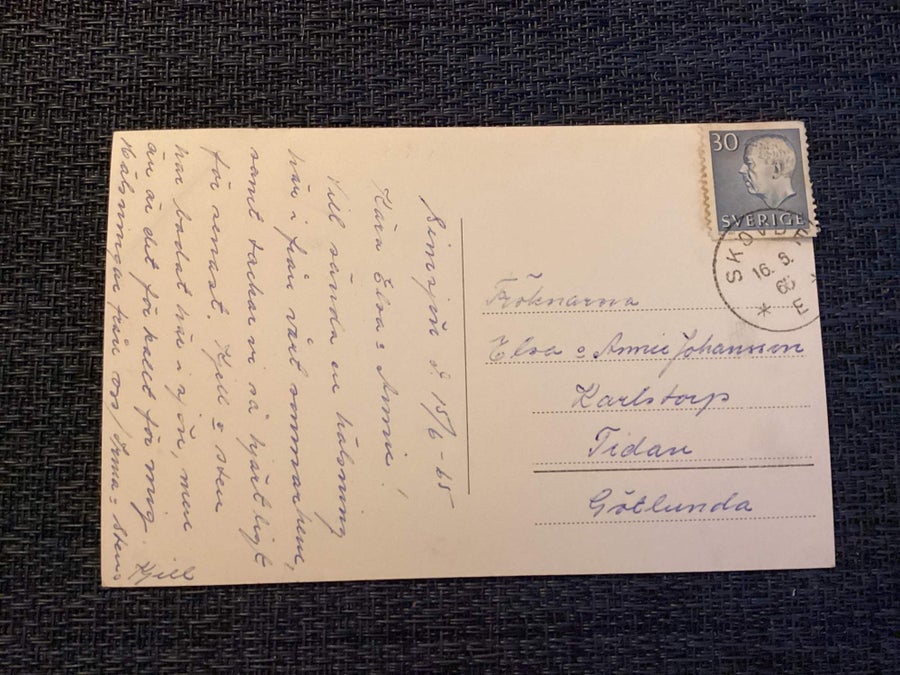 Simsjön d 15/6-65
Kära Elva o Annie!
Vill sända en hälsning
här i från vårt sommarhem,
samt tackar vi så hjärtligt
för senast. Kjell o Sten
har badat här i sjön, men
än är det för kallt för mig.
Hälsningar från oss/Irma o Sten o
Kjell
30
SVERIGE
SKÖVDE
16. 6.
65
E
Fröknarna
Elva o Annie Johansson
Karlstorp
Tidan
Götlunda